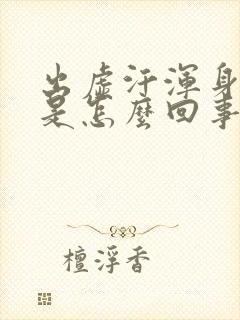 出虛汗渾身
是怎麼回事
檀浮香